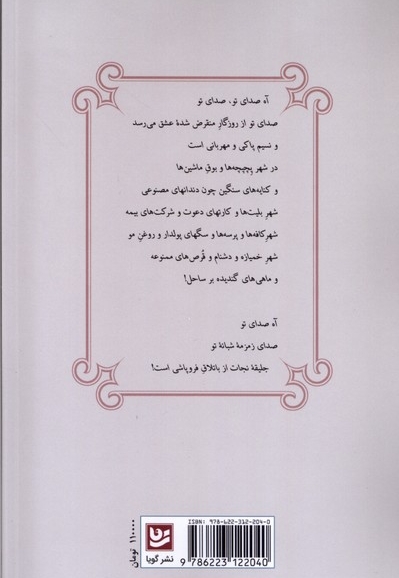 آه صدای تو، صدای تو
صدای تو از روزگارِ منقرض شدهٔ عشق می‌رسد
و نسیم پاکی و مهربانی است
در شهر پچپچه‌ها و بوقِ ماشین‌ها
و کتابه‌های سنگین چون دندانهای مصنوعی
شهرِ بلیت‌ها و کارتهای دعوت و شرکت‌های بیمه
شهر کافه‌ها و پرسه‌ها و سگهای پولدار و روغنِ مو
شهرِ خمیازه و دشنام و قُرص‌های ممنوعه
و ماهی‌های گندیده بر ساحل!
آه صدای تو
صدای زمزمهٔ شبانهٔ تو
جلیقهٔ نجات از باتلاقِ فروپاشی است!
ISBN: 978-622-312-204-0
9 786223 122040
نشر گویا
۱۱۰۰۰۰ تومان